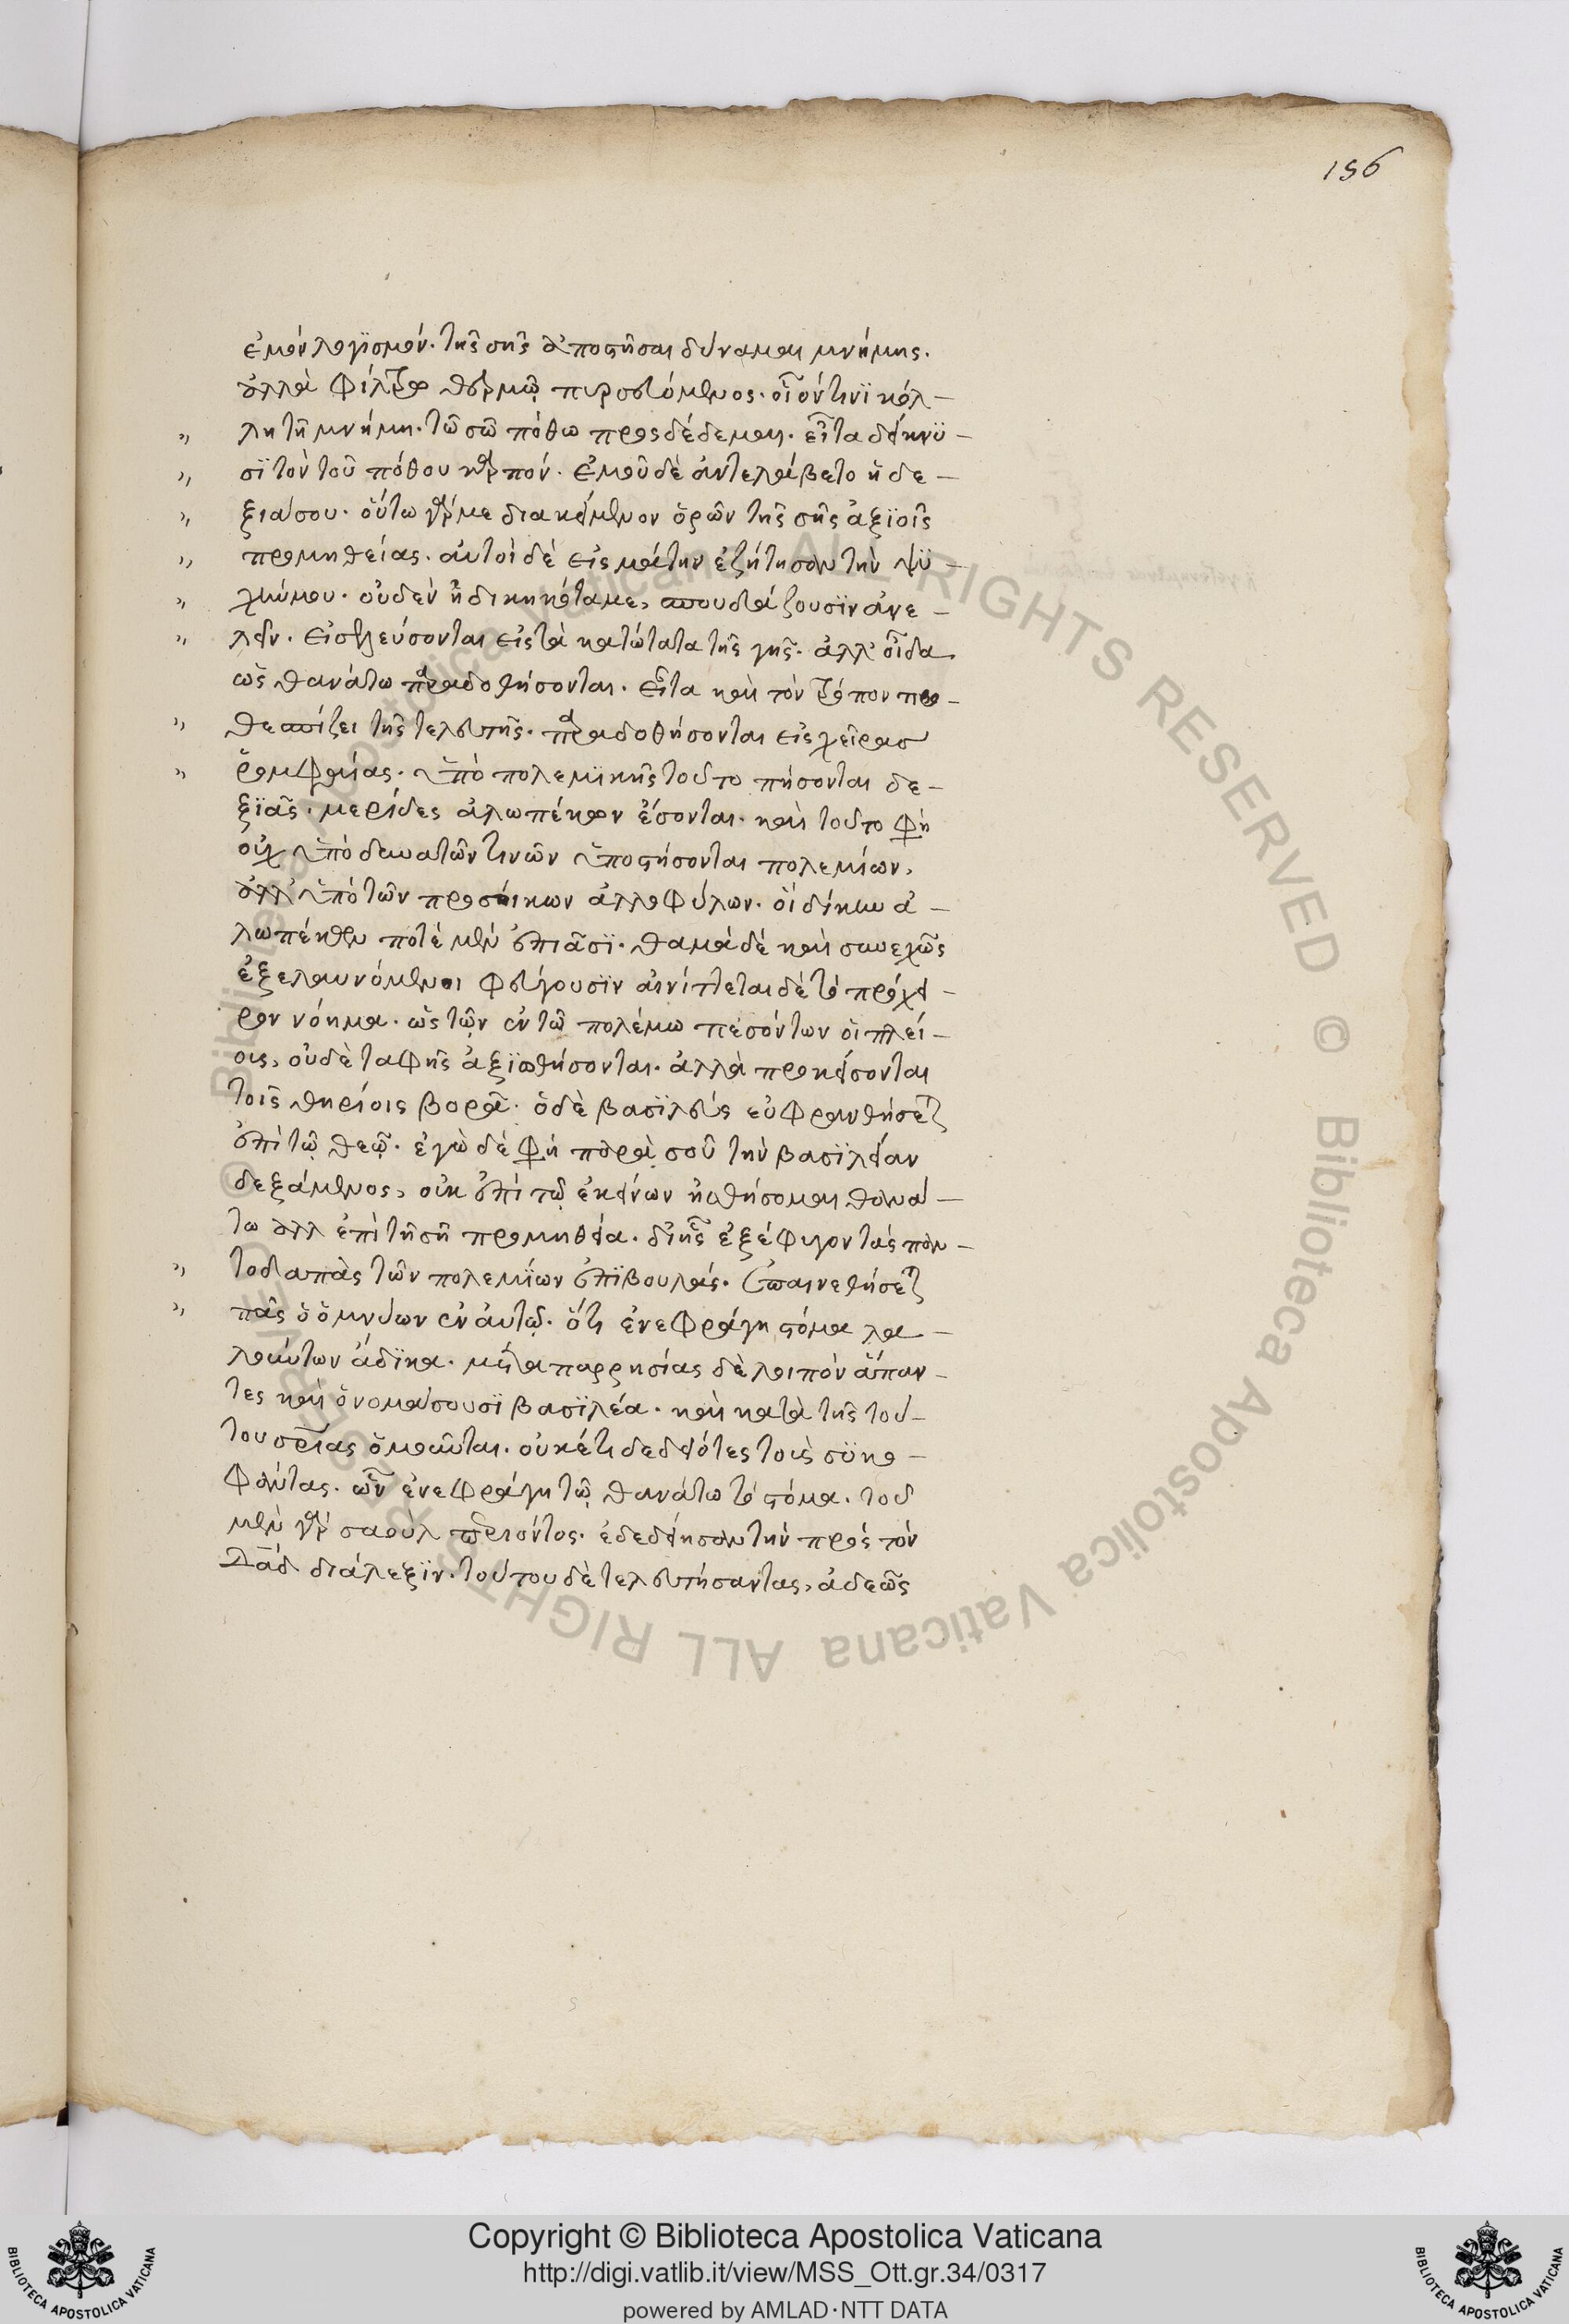 156
ἐμὸν λογϊσμόν. τῆς σῆς ἀποστῆσαι δύναμαι μνήμης.
ἀλλὰ φίλτρω θερμῷ πυρσευόμενος. οἷόν τινϊ κόλ-
λη τῆ μνήμη. τῶ σῶ πόθω προσδέδεμαι. εἶτα δείκνϋ-
σϊ τὸν τοῦ πόθου καρπόν. ἐμοῦ δὲ ἀντελάβετο ἡ δε-
ξιά σου. οὕτω γάρ με διακείμενον ὁρῶν τῆς σῆς ἀξϊοῖς
προμηθείας. αὐτοὶ δὲ εἰς μάτην ἐζήτησαν τὴν ψϋ-
χήν μου. οὐδὲν ἠδικηκότα με, σπουδάζουσϊν ἀνε-
λεῖν. εἰσελεύσονται εἰς τὰ κατώτατα τῆς γῆς. ἀλλ' οἶδα
ὡς θανάτω παραδοθήσονται. εἶτα καὶ τὸν τρόπον προ-
θεσπίζει τῆς τελευτῆς. παραδοθήσονται εἰς χεῖρας
ῥομφαίας. ὑπὸ πολεμϊκῆς τοῦτο πήσονται δε-
ξϊᾶς. μερίδες ἀλωπέκων ἔσονται. καὶ τοῦτο φη
οὐχ ὑπὸ δυνατῶν τινῶν ὑποστήσονται πολεμίων,
ἀλλ' ὑπὸ τῶν προσοίκων ἀλλοφύλων. οἱ δίκην ἀ-
λωπέκων ποτὲ μὲν ἐπιᾶσϊ. θαμὰ δὲ καὶ συνεχῶς
ἐξελαυνόμενοι φεύγουσϊν αἰνίττεται δὲ τὸ πρόχει-
ρον νόημα. ὡς τῶν ἐν τῶ πολέμω πεσόντων οἱ πλεί-
οις, οὐδὲ ταφῆς ἀξϊωθήσονται. ἀλλὰ προκείσονται
τοῖς θηρίοις βορᾶ. ὁ δὲ βασϊλεὺς εὐφρανθήσεται
ἐπὶ τῷ θεῷ. ἐγὼ δὲ φη παρὰ σοῦ τὴν βασϊλείαν
δεξάμενος, οὐκ ἐπὶ τῷ ἐκείνων ἡσθήσομαι θανά-
τω ἀλλ ἐπὶ τῆ σῆ προμηθεία. δι' ἧς ἐξέφυγον τὰς παν-
τοδαπὰς τῶν πολεμίων ἐπϊβουλάς. ἐπαινεθήσεται
πᾶς ὁ ὀμνύων ἐν αὐτῷ. ὅτι ἐνεφράγη στόμα λα-
λούντων ἄδϊκα. μετὰ παρρησίας δὲ λοιπὸν ἅπαν-
τες καὶ ὀνομάσουσϊ βασϊλέα. καὶ κατὰ τῆς τού-
του σρίας ὀμοῦνται. οὐκέτι δεδιότες τοὺς σϋκο-
φάντας. ὧν ἐνεφράγη τῷ θανάτω τὸ στόμα. τοῦ
μὲν γὰρ σαοὺλ περιόντος. ἐδεδίεισαν τὴν πρὸς τὸν
Δαδ διάλεξϊν. τούτου δὲ τελευτήσαντος, ἀδεῶς
Copyright © Biblioteca Apostolica Vaticana
http://digi.vatlib.it/view/MSS_Ott.gr.34/0317
powered by AMLAD·NTT DATA
BIBLIOTECA APOSTOLICA VATICANA
BIBLIOTECA APOSTOLICA VATICANA
© Biblioteca Apostolica Vaticana ALL RIGHTS RESERVED © Biblioteca Apostolica Vaticana ALL RIGHTS RESERVED